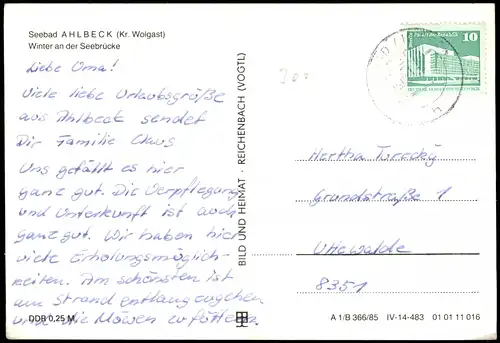 Seebad AHLBECK (Kr. Wolgast)
Winter an der Seebrücke
Liebe Oma!
Viele liebe Urlaubsgrüße
aus Ahlbeck sendet
Dir Familie Claus
Uns gefällt es hier
ganz gut. Die Verpflegung
und Unterkunft ist auch
ganz gut. Wir haben hier
viele Erholungsmöglich-
keiten. Am schönsten ist
am Strand entlangzugehen
und die Möwen zu füttern.
DDR 0,25 M
BILD UND HEIMAT · REICHENBACH (VOGTL)
10
Hertha Turecky
Grundstraße 1
Uttewalde
8351
A 1/B 366/85 IV-14-483 01 01 11 016